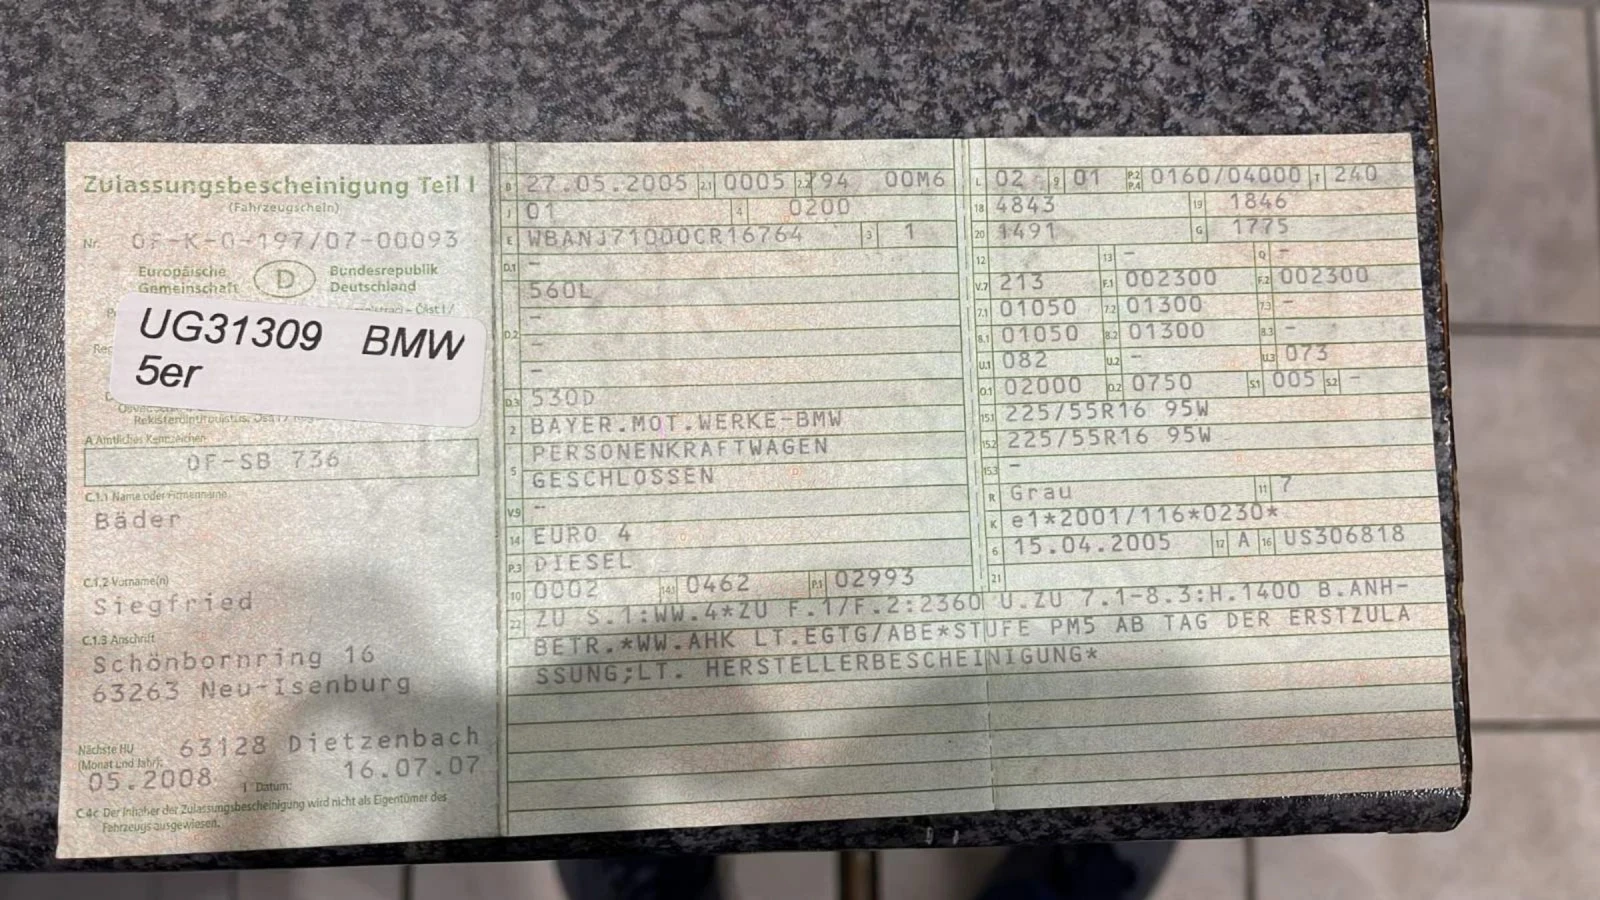 Zulassungsbescheinigung Teil I
(Fahrzeugschein)
Nr. OF-K-0-197/07-00093
Europäische Gemeinschaft D Bundesrepublik Deutschland
UG31309 BMW
5er
A Amtliches Kennzeichen
OF-SB 736
C.1.1 Name oder Firmenname
Bäder
C.1.2 Vorname(n)
Siegfried
C.1.3 Anschrift
Schönbornring 16
63263 Neu-Isenburg
Nächste HU 63128 Dietzenbach
(Monat und Jahr): 16.07.07
05.2008 Datum:
C4c Der Inhaber der Zulassungsbescheinigung wird nicht als Eigentümer des
Fahrzeugs ausgewiesen.
B 27.05.2005 2.1 0005 2.2 794 00M6
J 01 4 0200
E WBANJ71000CR16764 3 1
D.1 -
560L
-
D.2 -
-
D.3 530D
2 BAYER.MOT.WERKE-BMW
PERSONENKRAFTWAGEN
5 GESCHLOSSEN
V.9 -
14 EURO 4
P.3 DIESEL
10 0002 14.1 0462 P.1 02993
L 02 9 01 P.2 P.4 0160/04000 T 240
18 4843 19 1846
20 1491 G 1775
12 - 13 - Q -
V.7 213 F.1 002300 F.2 002300
7.1 01050 7.2 01300 7.3 -
8.1 01050 8.2 01300 8.3 -
U.1 082 U.2 - U.3 073
O.1 02000 O.2 0750 S.1 005 S.2 -
15.1 225/55R16 95W
15.2 225/55R16 95W
15.3 -
R Grau 11 7
K e1*2001/116*0230*
6 15.04.2005 17 A 16 US306818
21
22 ZU S.1:WW.4*ZU F.1/F.2:2360 U.ZU 7.1-8.3:H.1400 B.ANH-
BETR.*WW.AHK LT.EGTG/ABE*STUFE PM5 AB TAG DER ERSTZULA
SSUNG;LT. HERSTELLERBESCHEINIGUNG*